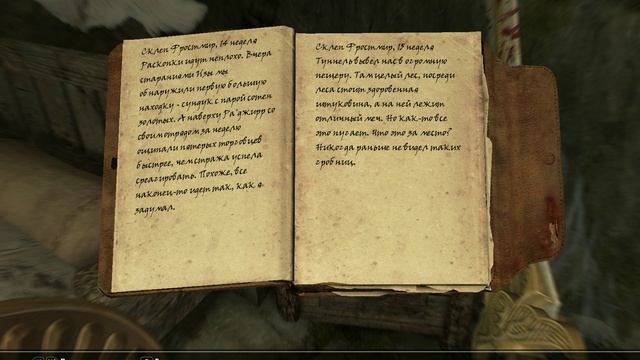 Склеп Фростмир, 14 неделя
Раскопки идут неплохо. Вчера
стараниями Изы мы
обнаружили первую большую
находку - сундук с парой сотен
золотых. А наверху Ра'джирр со
своим отрядом за неделю
ощипали пятерых торговцев
быстрее, чем стража успела
среагировать. Похоже, все
наконец-то идет так, как я
задумал.
Склеп Фростмир, 15 неделя
Туннель вывел нас в огромную
пещеру. Там целый лес, посреди
леса стоит здоровенная
штуковина, а на ней лежит
отличный меч. Но как-то все
это пугает. Что это за место?
Никогда раньше не видел таких
гробниц.